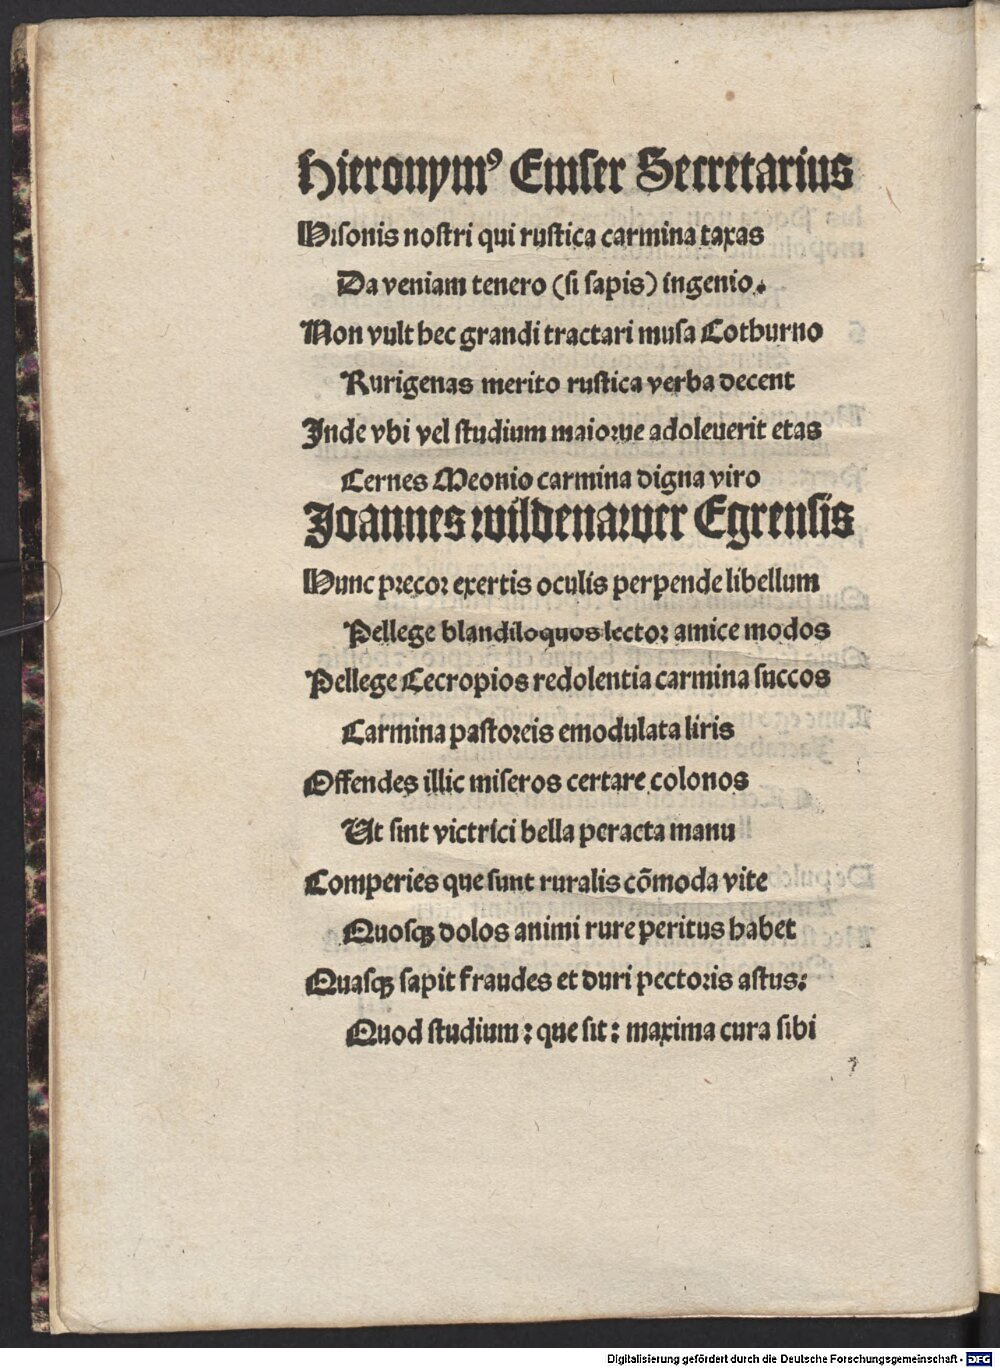 Hieronymꝰ Emser Secretarius
Nisonis nostri qui rustica carmina taxas
Da veniam tenero (si sapis) ingenio.
Non vult hec grandi tractari musa Cothurno
Rurigenas merito rustica verba decent
Inde vbi vel studium maiorue adoleuerit etas
Cernes Meonio carmina digna viro
Joannes wildenawer Egrensis
Nunc precor exertis oculis perpende libellum
Pellege blandiloquos lector amice modos
Pellege Cecropios redolentia carmina succos
Carmina pastoreis emodulata liris
Offendes illic miseros certare colonos
Ut sint victrici bella peracta manu
Comperies que sunt ruralis cōmoda vite
Quosqꝫ dolos animi rure peritus habet
Quasqꝫ sapit fraudes et duri pectoris astus:
Quod studium: que sit: maxima cura sibi
Digitalisierung gefördert durch die Deutsche Forschungsgemeinschaft - DFG